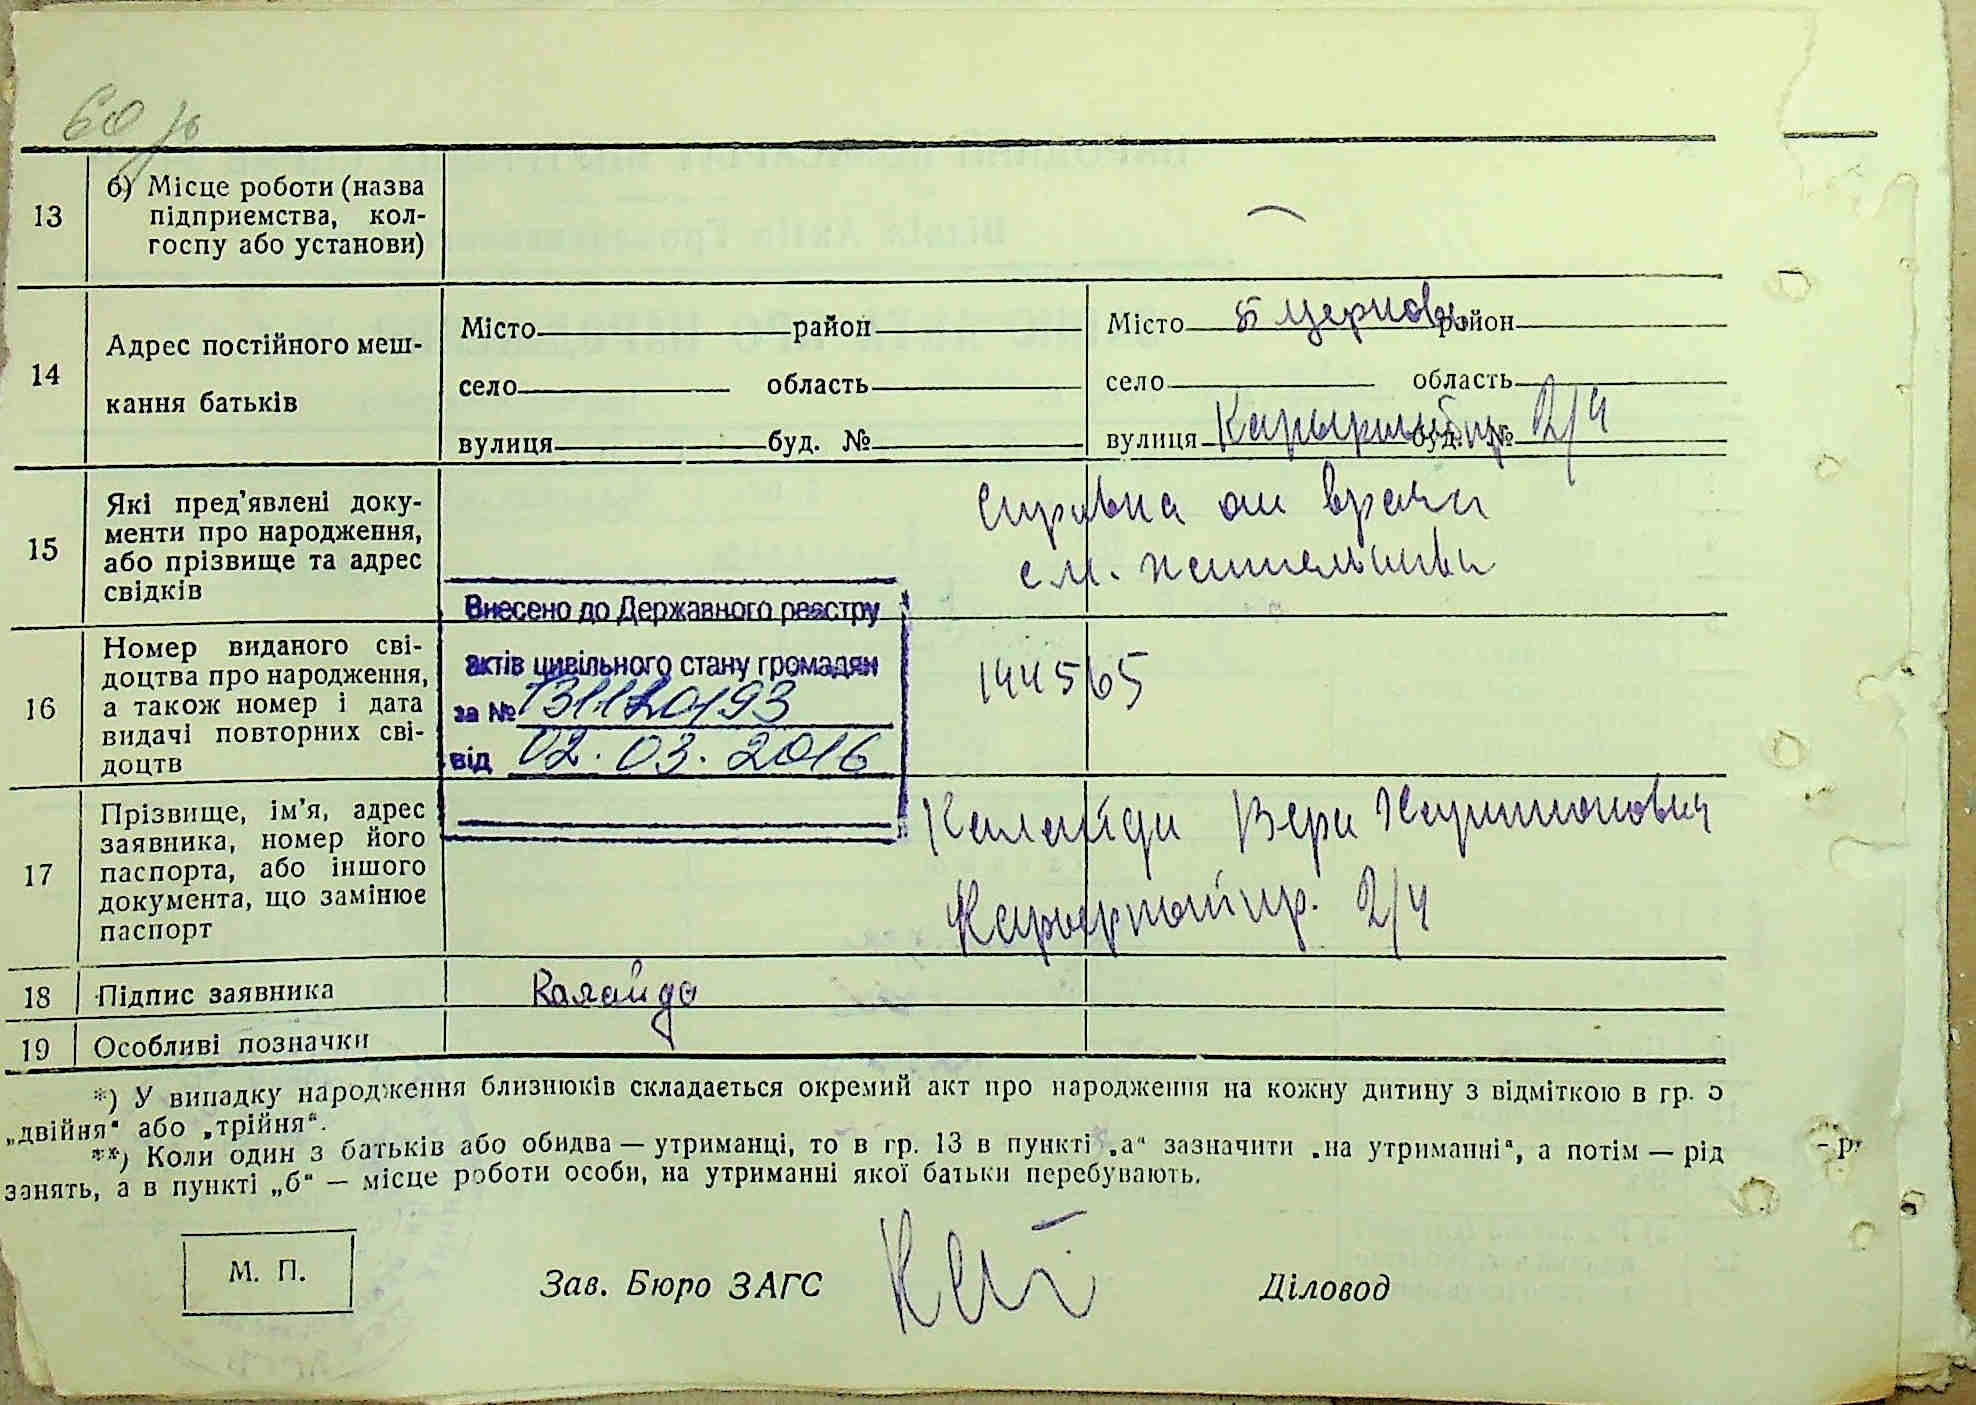 60 зв
13
б) Місце роботи (назва
підприемства, кол-
госпу або установи)
—
14
Адрес постійного меш-
кання батьків
Місто район
село область
вулиця буд. №
Місто Б Церковь район
село область
вулиця Карьерный пр буд. № 2/4
15
Які пред'явлені доку-
менти про народження,
або прізвище та адрес
свідків
Справка от врача
с м. жительства
16
Номер виданого сві-
доцтва про народження,
а також номер і дата
видачі повторних сві-
доцтв
144565
Внесено до Державного реєстру
актів цивільного стану громадян
за №
від 02.03.2016
17
Прізвище, ім'я, адрес
заявника, номер його
паспорта, або іншого
документа, що замінює
паспорт
Калайда Вера
пр. 2/4
18
Підпис заявника
Калайда
19
Особливі позначки
*) У випадку народження близнюків складається окремий акт про народження на кожну дитину з відміткою в гр. 5
„двійня“ або „трійня“.
**) Коли один з батьків або обидва — утриманці, то в гр. 13 в пункті „а“ зазначити „на утриманні“, а потім — рід
занять, а в пункті „б“ — місце роботи особи, на утриманні якої батьки перебувають.
М. П.
Зав. Бюро ЗАГС
Діловод